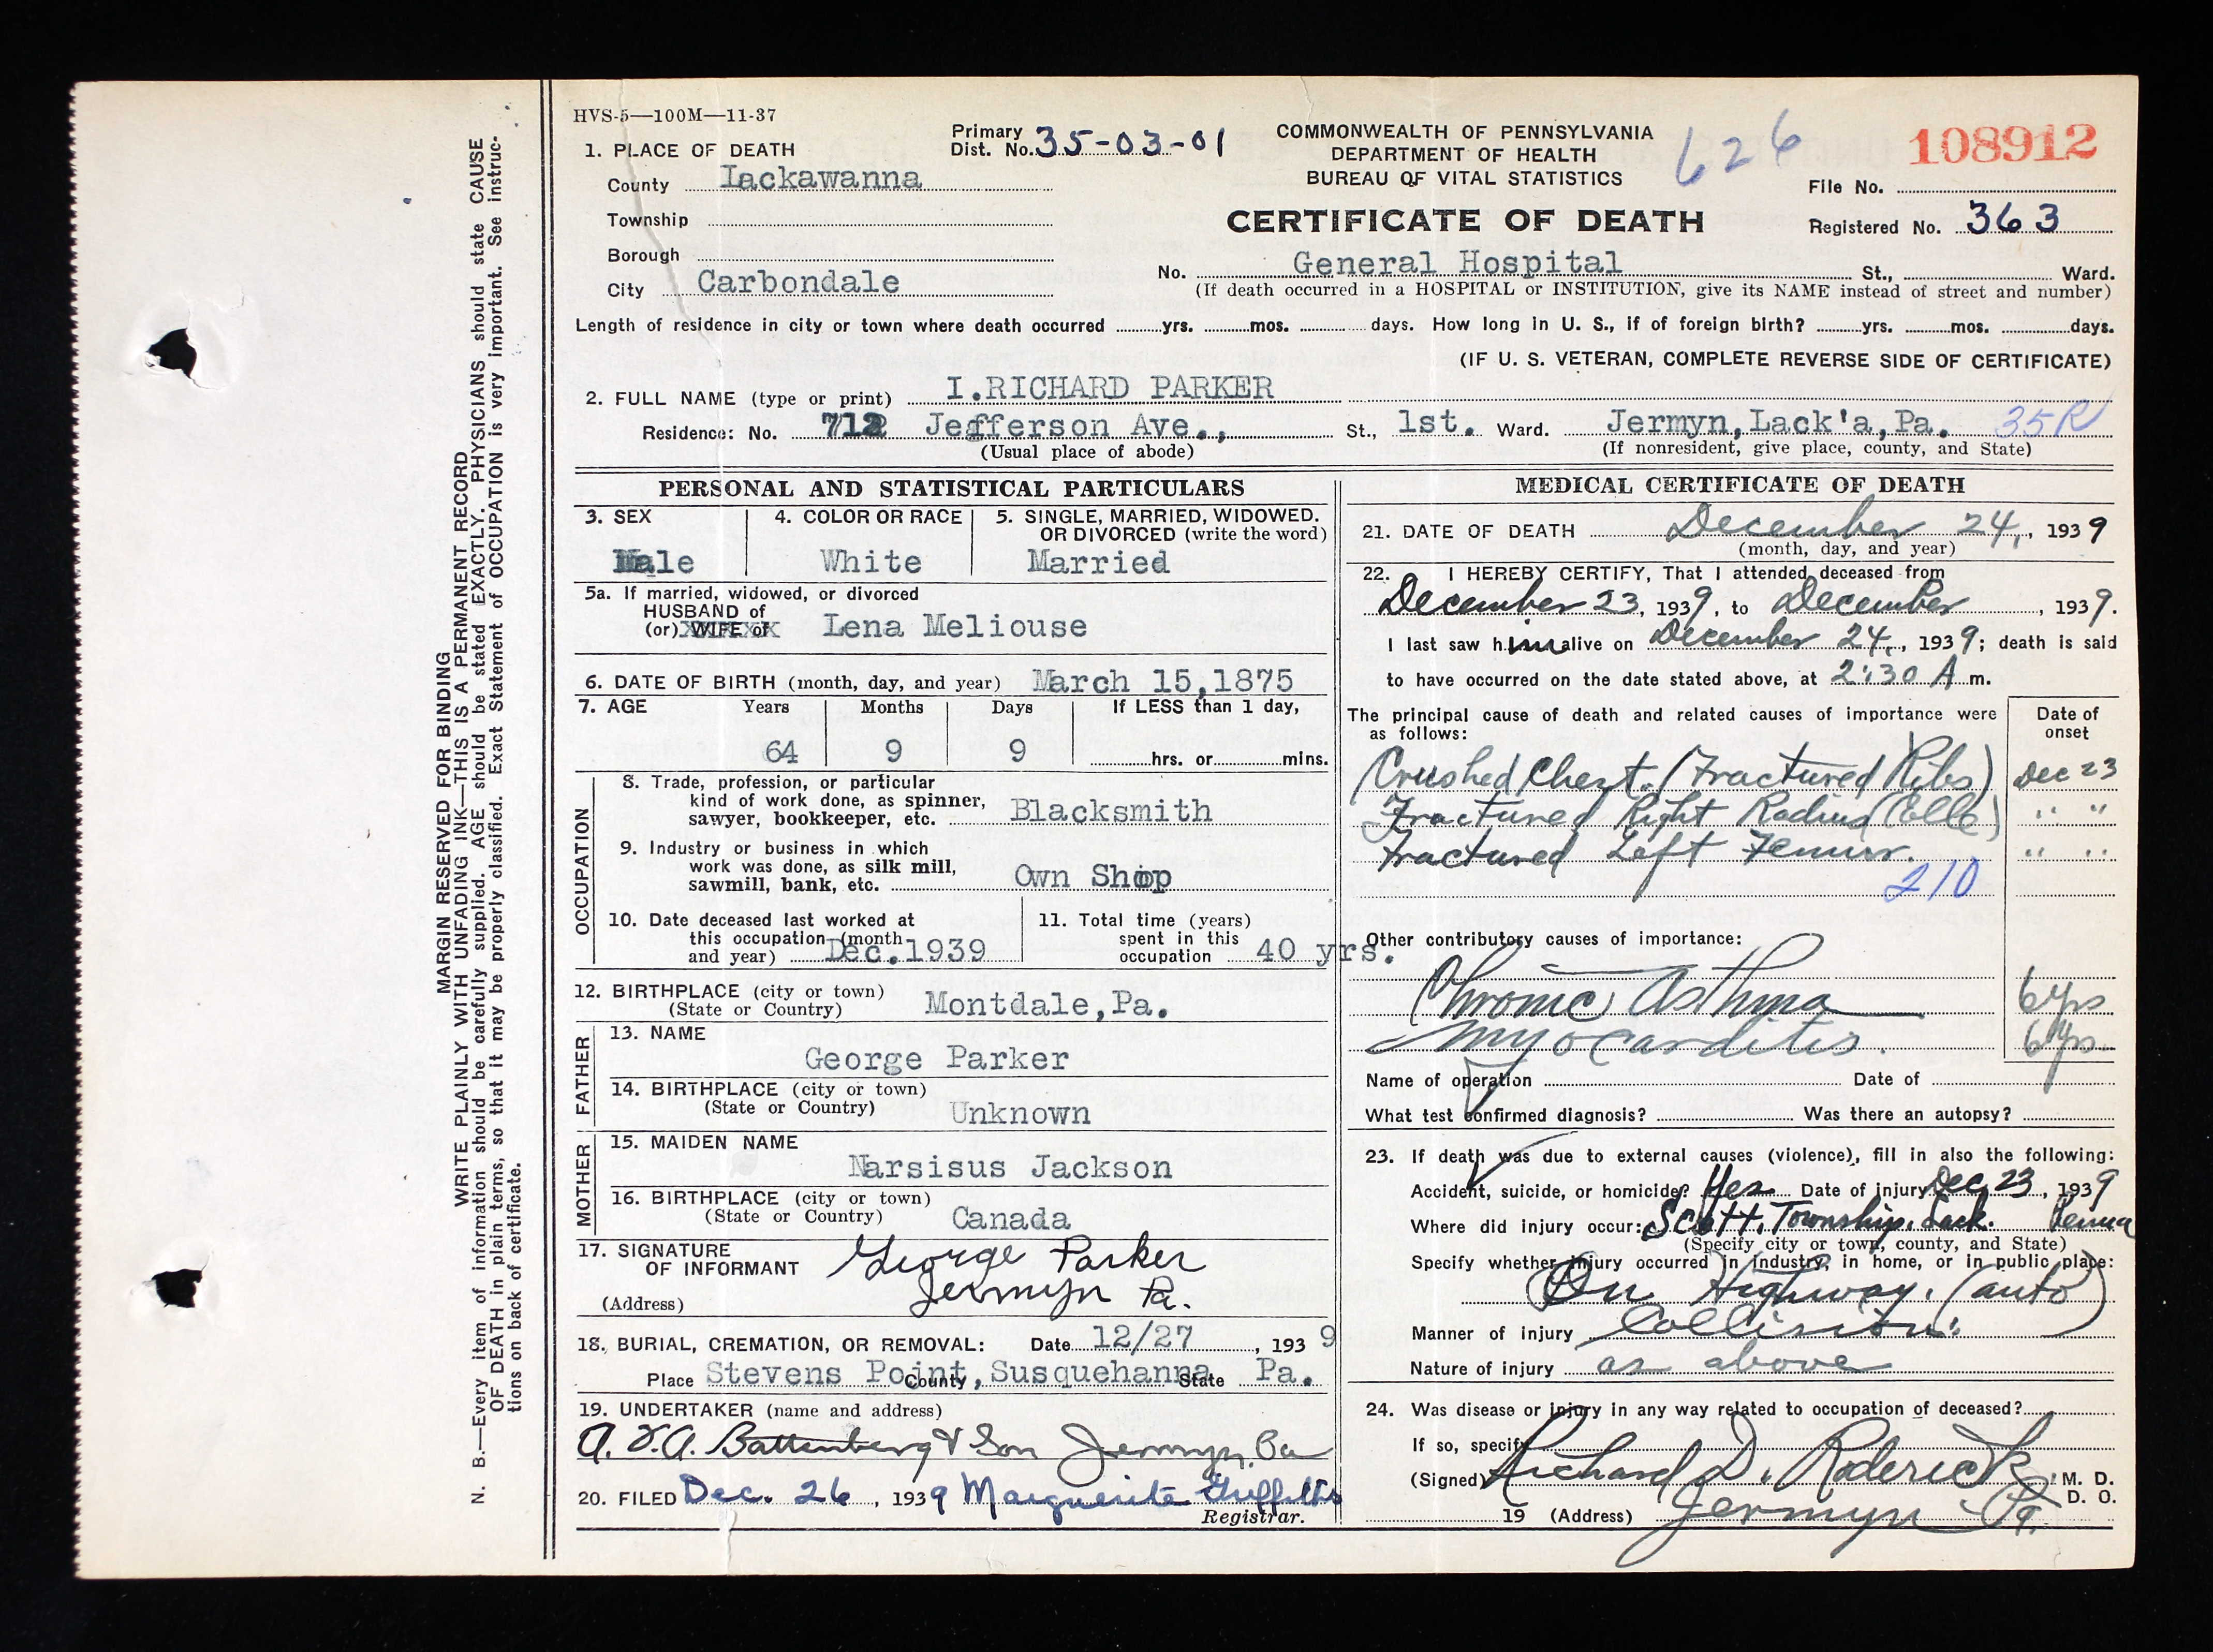 HVS-5—100M—11-37
1. PLACE OF DEATH
Primary Dist. No. 35-03-01
COMMONWEALTH OF PENNSYLVANIA
DEPARTMENT OF HEALTH
BUREAU OF VITAL STATISTICS
626
108912
File No.
County Lackawanna
Township
CERTIFICATE OF DEATH
Registered No. 363
Borough
City Carbondale
No. General Hospital St., Ward.
(If death occurred in a HOSPITAL or INSTITUTION, give its NAME instead of street and number)
Length of residence in city or town where death occurred yrs. mos. days. How long in U. S., if of foreign birth? yrs. mos. days.
(IF U. S. VETERAN, COMPLETE REVERSE SIDE OF CERTIFICATE)
2. FULL NAME (type or print) I.RICHARD PARKER
Residence: No. 712 Jefferson Ave., St., 1st. Ward. Jermyn,Lack'a,Pa. 35R
(Usual place of abode) (If nonresident, give place, county, and State)
PERSONAL AND STATISTICAL PARTICULARS
3. SEX 4. COLOR OR RACE 5. SINGLE, MARRIED, WIDOWED.
OR DIVORCED (write the word)
Male White Married
5a. If married, widowed, or divorced
HUSBAND of
(or) WIFE of Lena Meliouse
6. DATE OF BIRTH (month, day, and year) March 15,1875
7. AGE Years Months Days If LESS than 1 day,
64 9 9 hrs. or mins.
OCCUPATION
8. Trade, profession, or particular
kind of work done, as spinner,
sawyer, bookkeeper, etc. Blacksmith
9. Industry or business in which
work was done, as silk mill,
sawmill, bank, etc. Own Shop
10. Date deceased last worked at
this occupation (month
and year) Dec.1939
11. Total time (years)
spent in this
occupation 40 yrs.
12. BIRTHPLACE (city or town)
(State or Country) Montdale,Pa.
FATHER
13. NAME
George Parker
14. BIRTHPLACE (city or town)
(State or Country) Unknown
MOTHER
15. MAIDEN NAME
Narsisus Jackson
16. BIRTHPLACE (city or town)
(State or Country) Canada
17. SIGNATURE
OF INFORMANT George Parker
(Address) Jermyn Pa.
18. BURIAL, CREMATION, OR REMOVAL: Date 12/27, 1939
Place Stevens Point, County Susquehanna State Pa.
19. UNDERTAKER (name and address)
Battenberg & Son Jermyn, Pa
20. FILED Dec. 26, 1939 Marguerite Griffiths
Registrar.
MEDICAL CERTIFICATE OF DEATH
21. DATE OF DEATH December 24, 1939
(month, day, and year)
22. I HEREBY CERTIFY, That I attended deceased from
December 23, 1939, to December, 1939.
I last saw him alive on December 24, 1939; death is said
to have occurred on the date stated above, at 2:30 A m.
The principal cause of death and related causes of importance were
as follows:
Date of
onset
Crushed Chest. (Fractured Ribs) Dec 23
Fractured Right Radius " "
Fractured Left Femur. " "
210
Other contributory causes of importance:
Chronic Asthma 6 yrs
Myocarditis. 6 yrs.
Name of operation Date of
What test confirmed diagnosis? Was there an autopsy?
23. If death was due to external causes (violence), fill in also the following:
Accident, suicide, or homicide? Yes Date of injury Dec 23, 1939
Where did injury occur: Scott. Township. Lack. Penna
(Specify city or town, county, and State)
Specify whether injury occurred in industry, in home, or in public place:
On Highway. (auto)
Manner of injury Collision.
Nature of injury as above
24. Was disease or injury in any way related to occupation of deceased?
If so, specify
(Signed) Richard D. Roderick M. D.
D. O.
19 (Address) Jermyn Pa.
MARGIN RESERVED FOR BINDING
WRITE PLAINLY WITH UNFADING INK—THIS IS A PERMANENT RECORD
N. B.—Every item of information should be carefully supplied. AGE should be stated EXACTLY. PHYSICIANS should state CAUSE
OF DEATH in plain terms, so that it may be properly classified. Exact Statement of OCCUPATION is very important. See instruc-
tions on back of certificate.